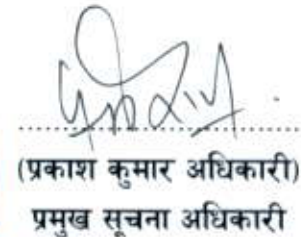 (प्रकाश कुमार अधिकारी)
प्रमुख सूचना अधिकारी